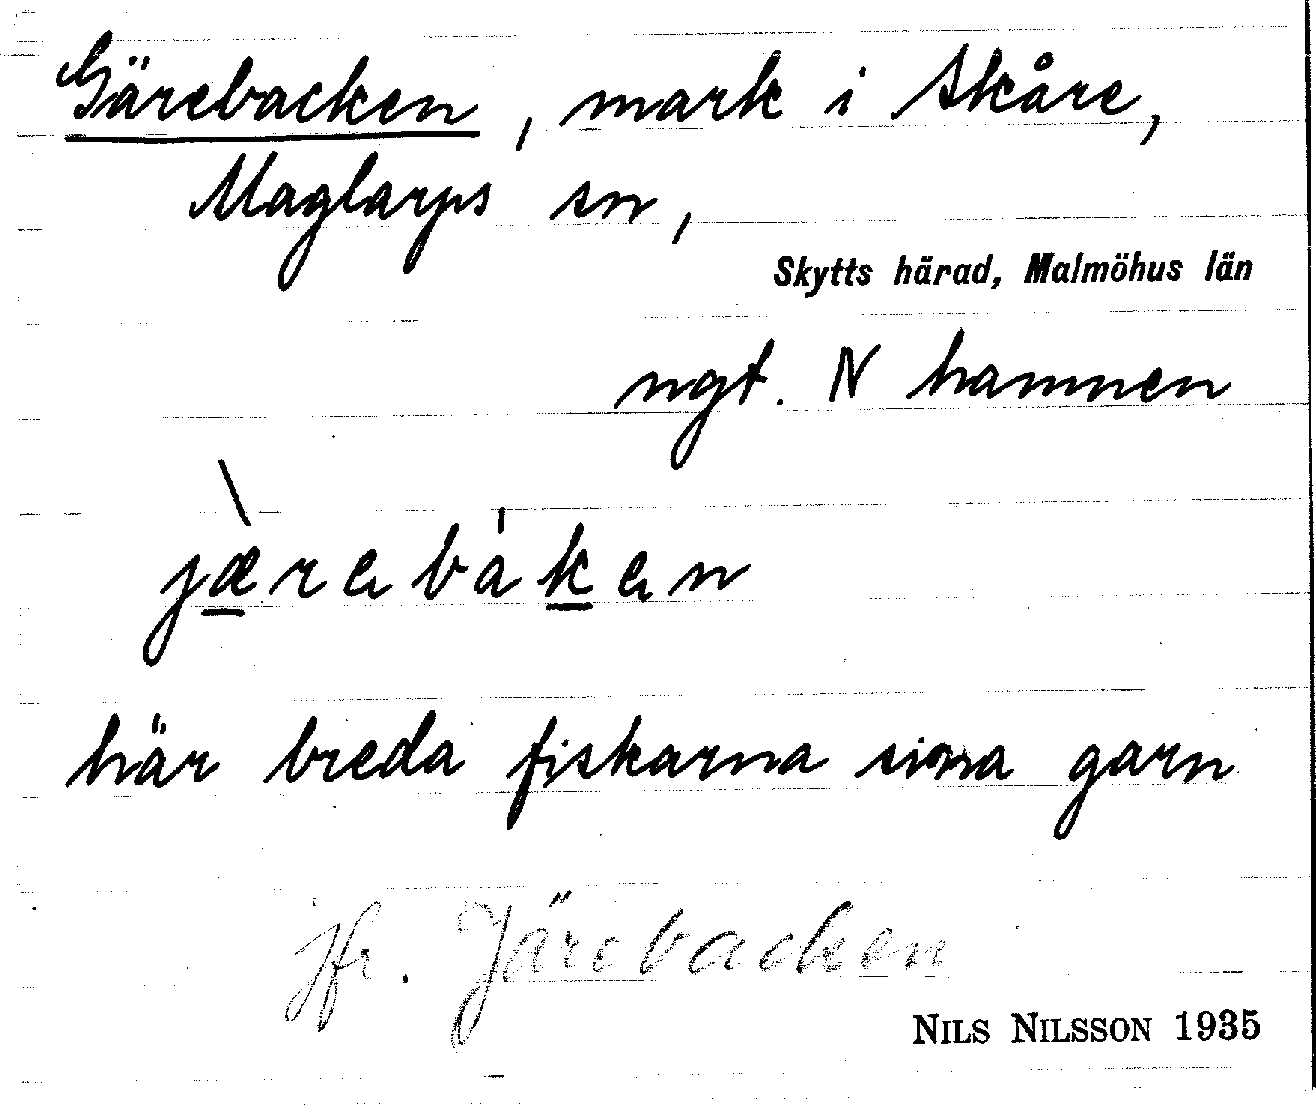 Gärebacken, mark i Skåre,
Maglarps sn,
Skytts härad, Malmöhus län
ngt. N hamnen
jæ̀rebáken
här breda fiskarna sina garn
jfr. Järebacken
NILS NILSSON 1935